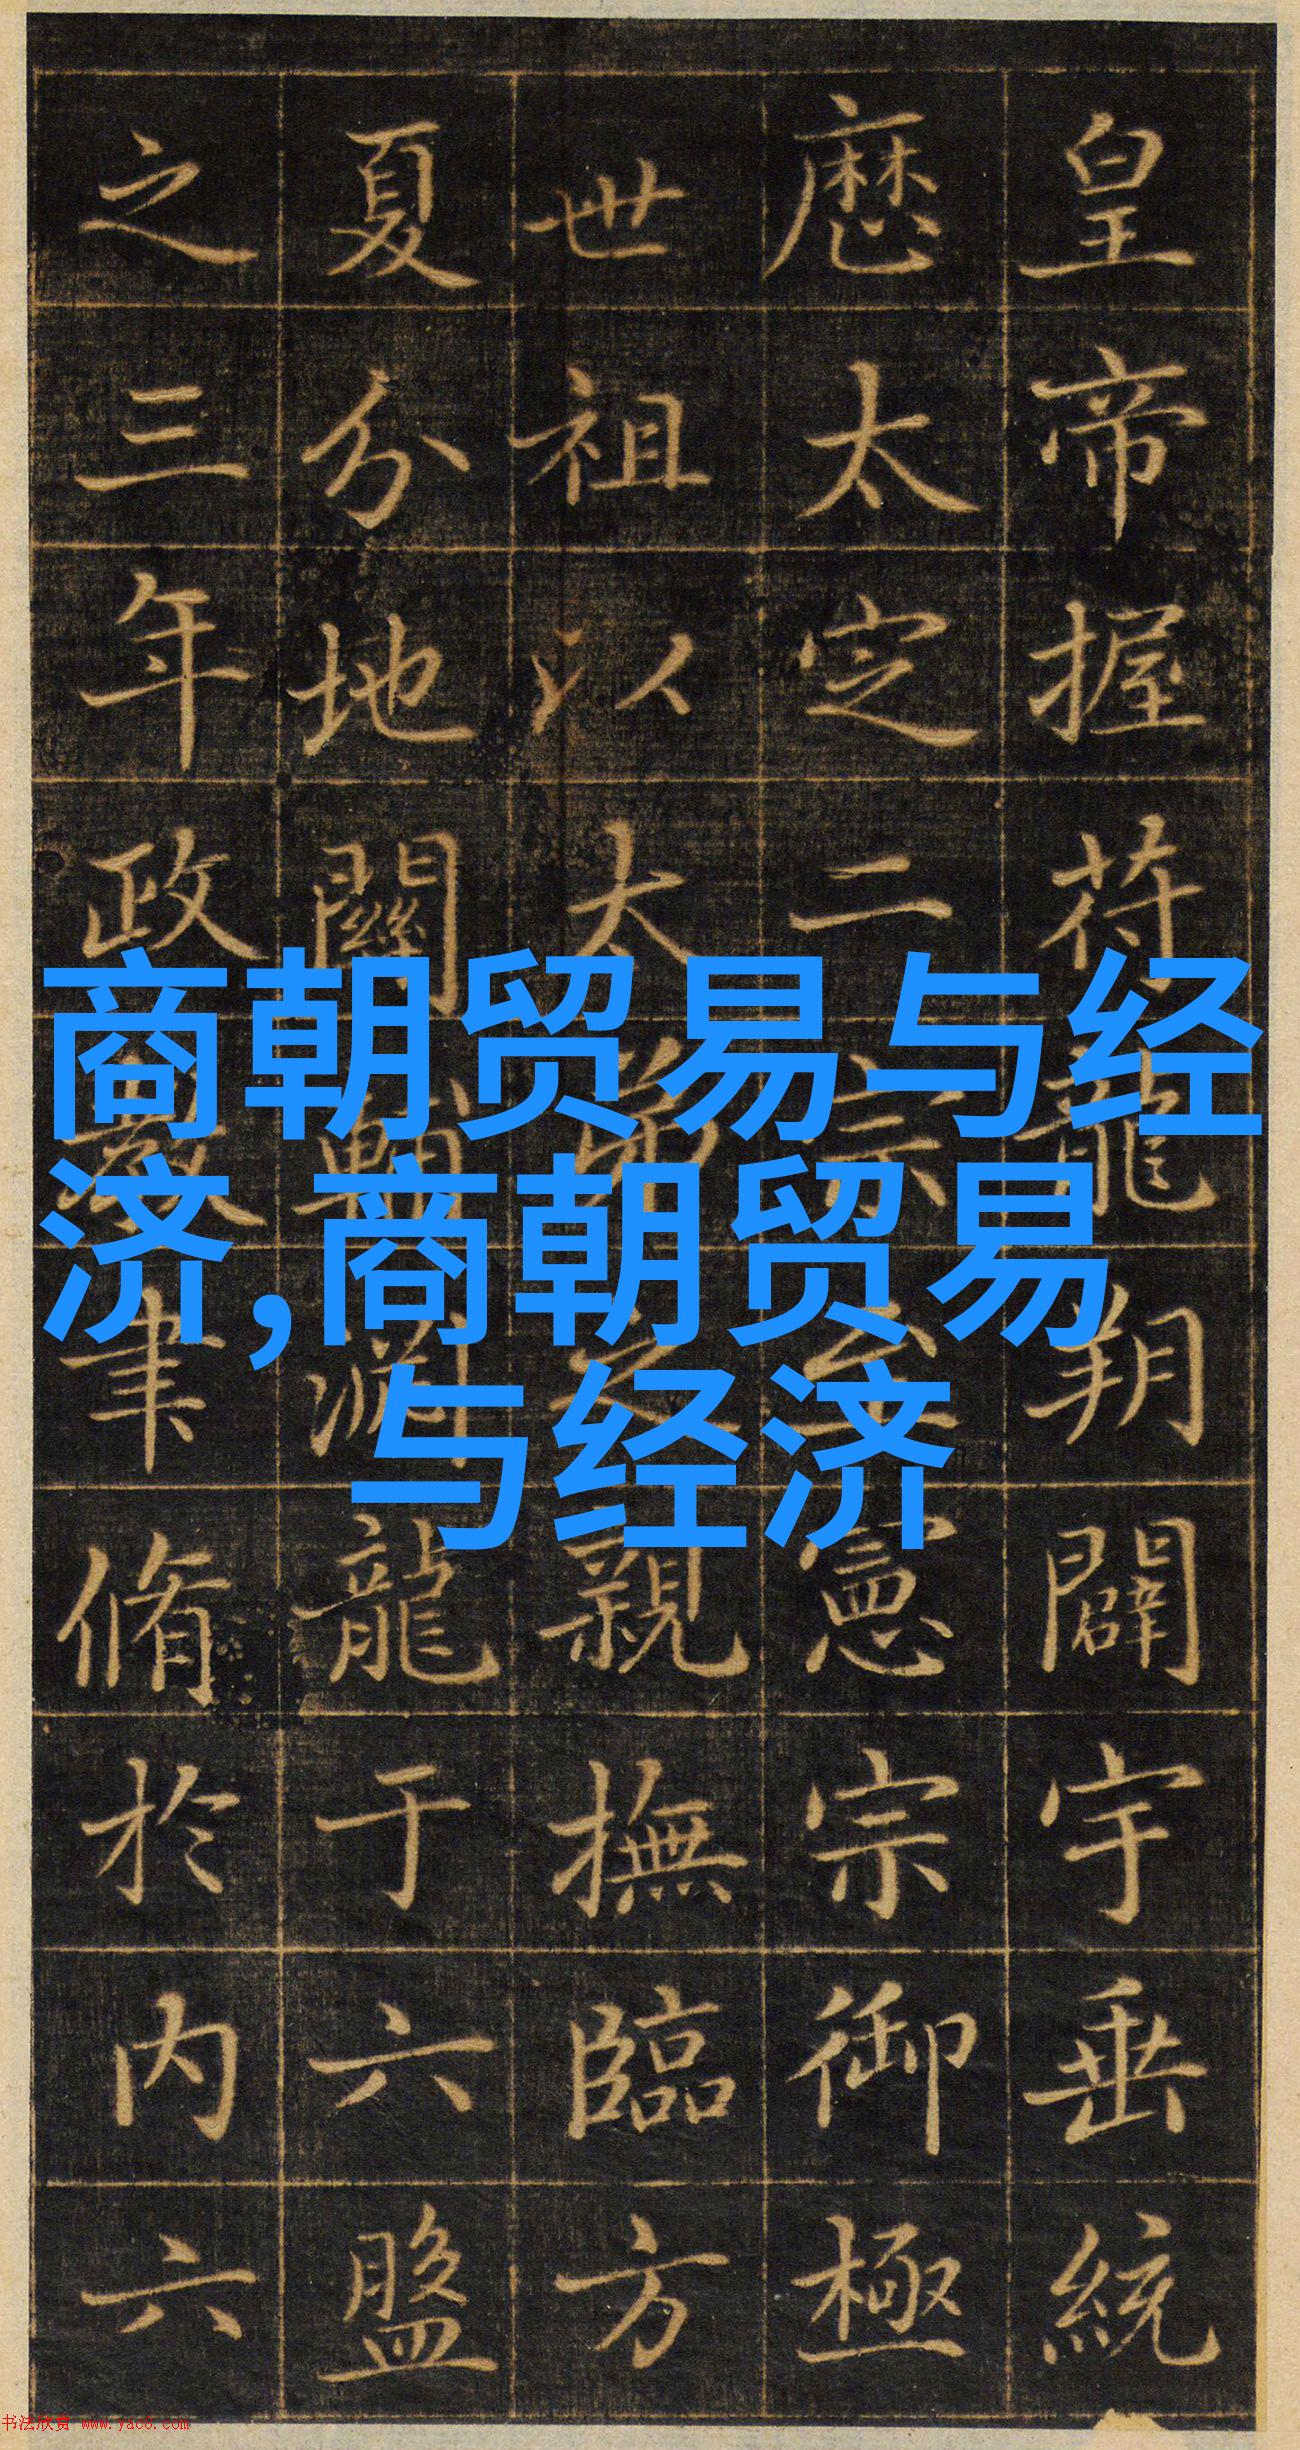 皇帝握符龍朔闢宇垂統
厯太定二宗至憲宗御極
世祖以太弟之親撫臨方
夏分地關輔淵龍于六盤
之三年政教聿脩於内六
商朝贸易与经
济,商朝贸易
与经济
书法欣赏 www.yac8.com